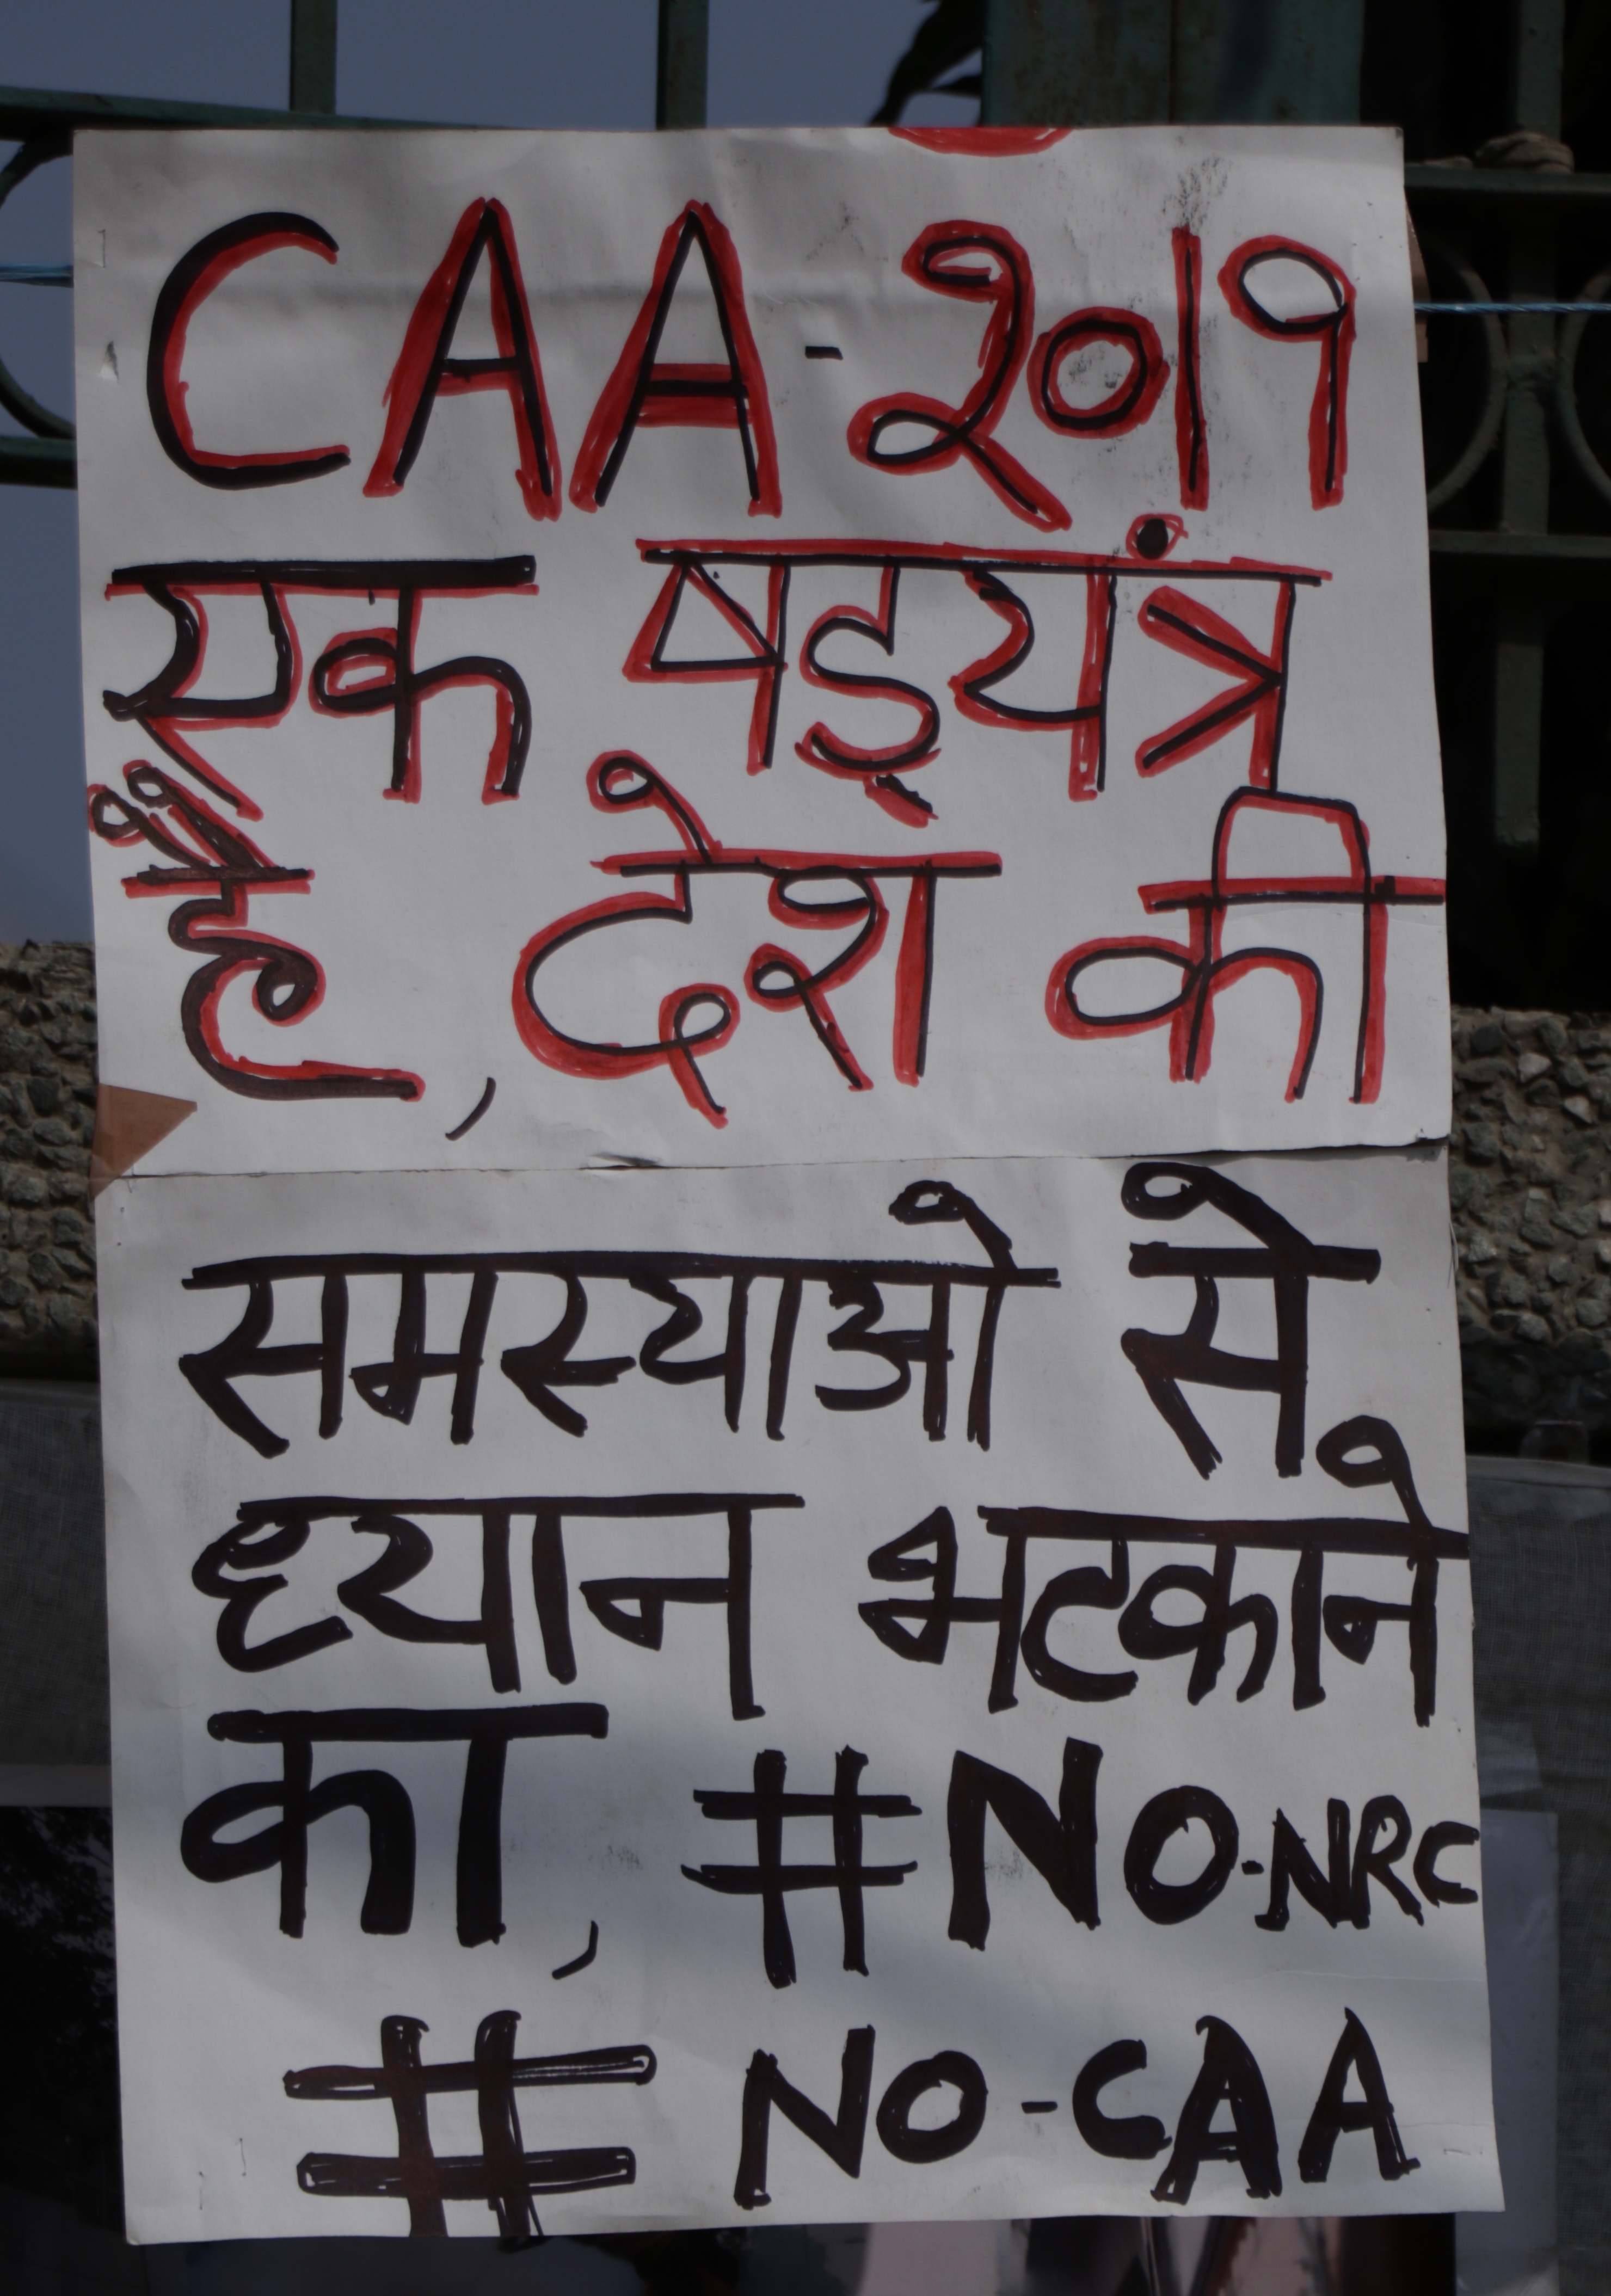 CAA-2019
एक षड्यंत्र
है, देश की
समस्याओ से
ध्यान भटकाने
का, #NO-NRC
# NO-CAA